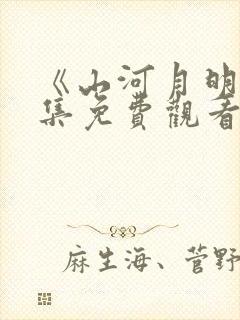 《山河月明
集免費觀看
麻生海、菅野